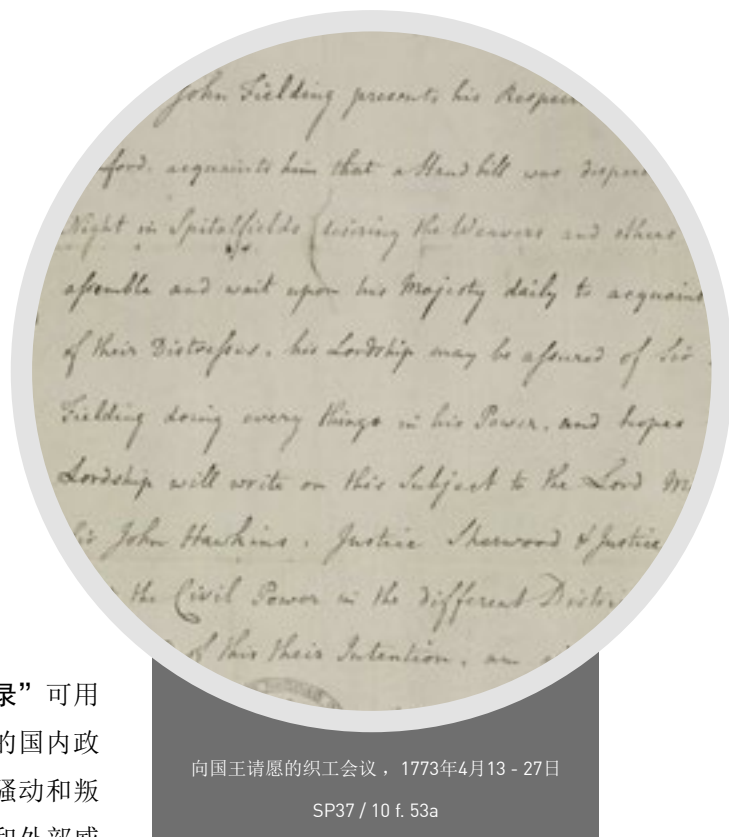 John Fielding presents his Respec
ford. acquaints him that a Hand bill was dispers
Night in Spitalfields desiring the Weavers and others
assemble and wait upon his Majesty daily to acquaint
of their Distresses. his Lordship may be assured of Sir
Fielding doing every things in his Power. and hopes
Lordship will write on this Subject to the Lord M
Sir John Hawkins. Justice Sherwood & Justice
the Civil Power in the different Distri
of this their Intention.
录”可用
的国内政
骚动和叛
和外部威
向国王请愿的织工会议，1773年4月13 - 27日
SP37 / 10 f. 53a